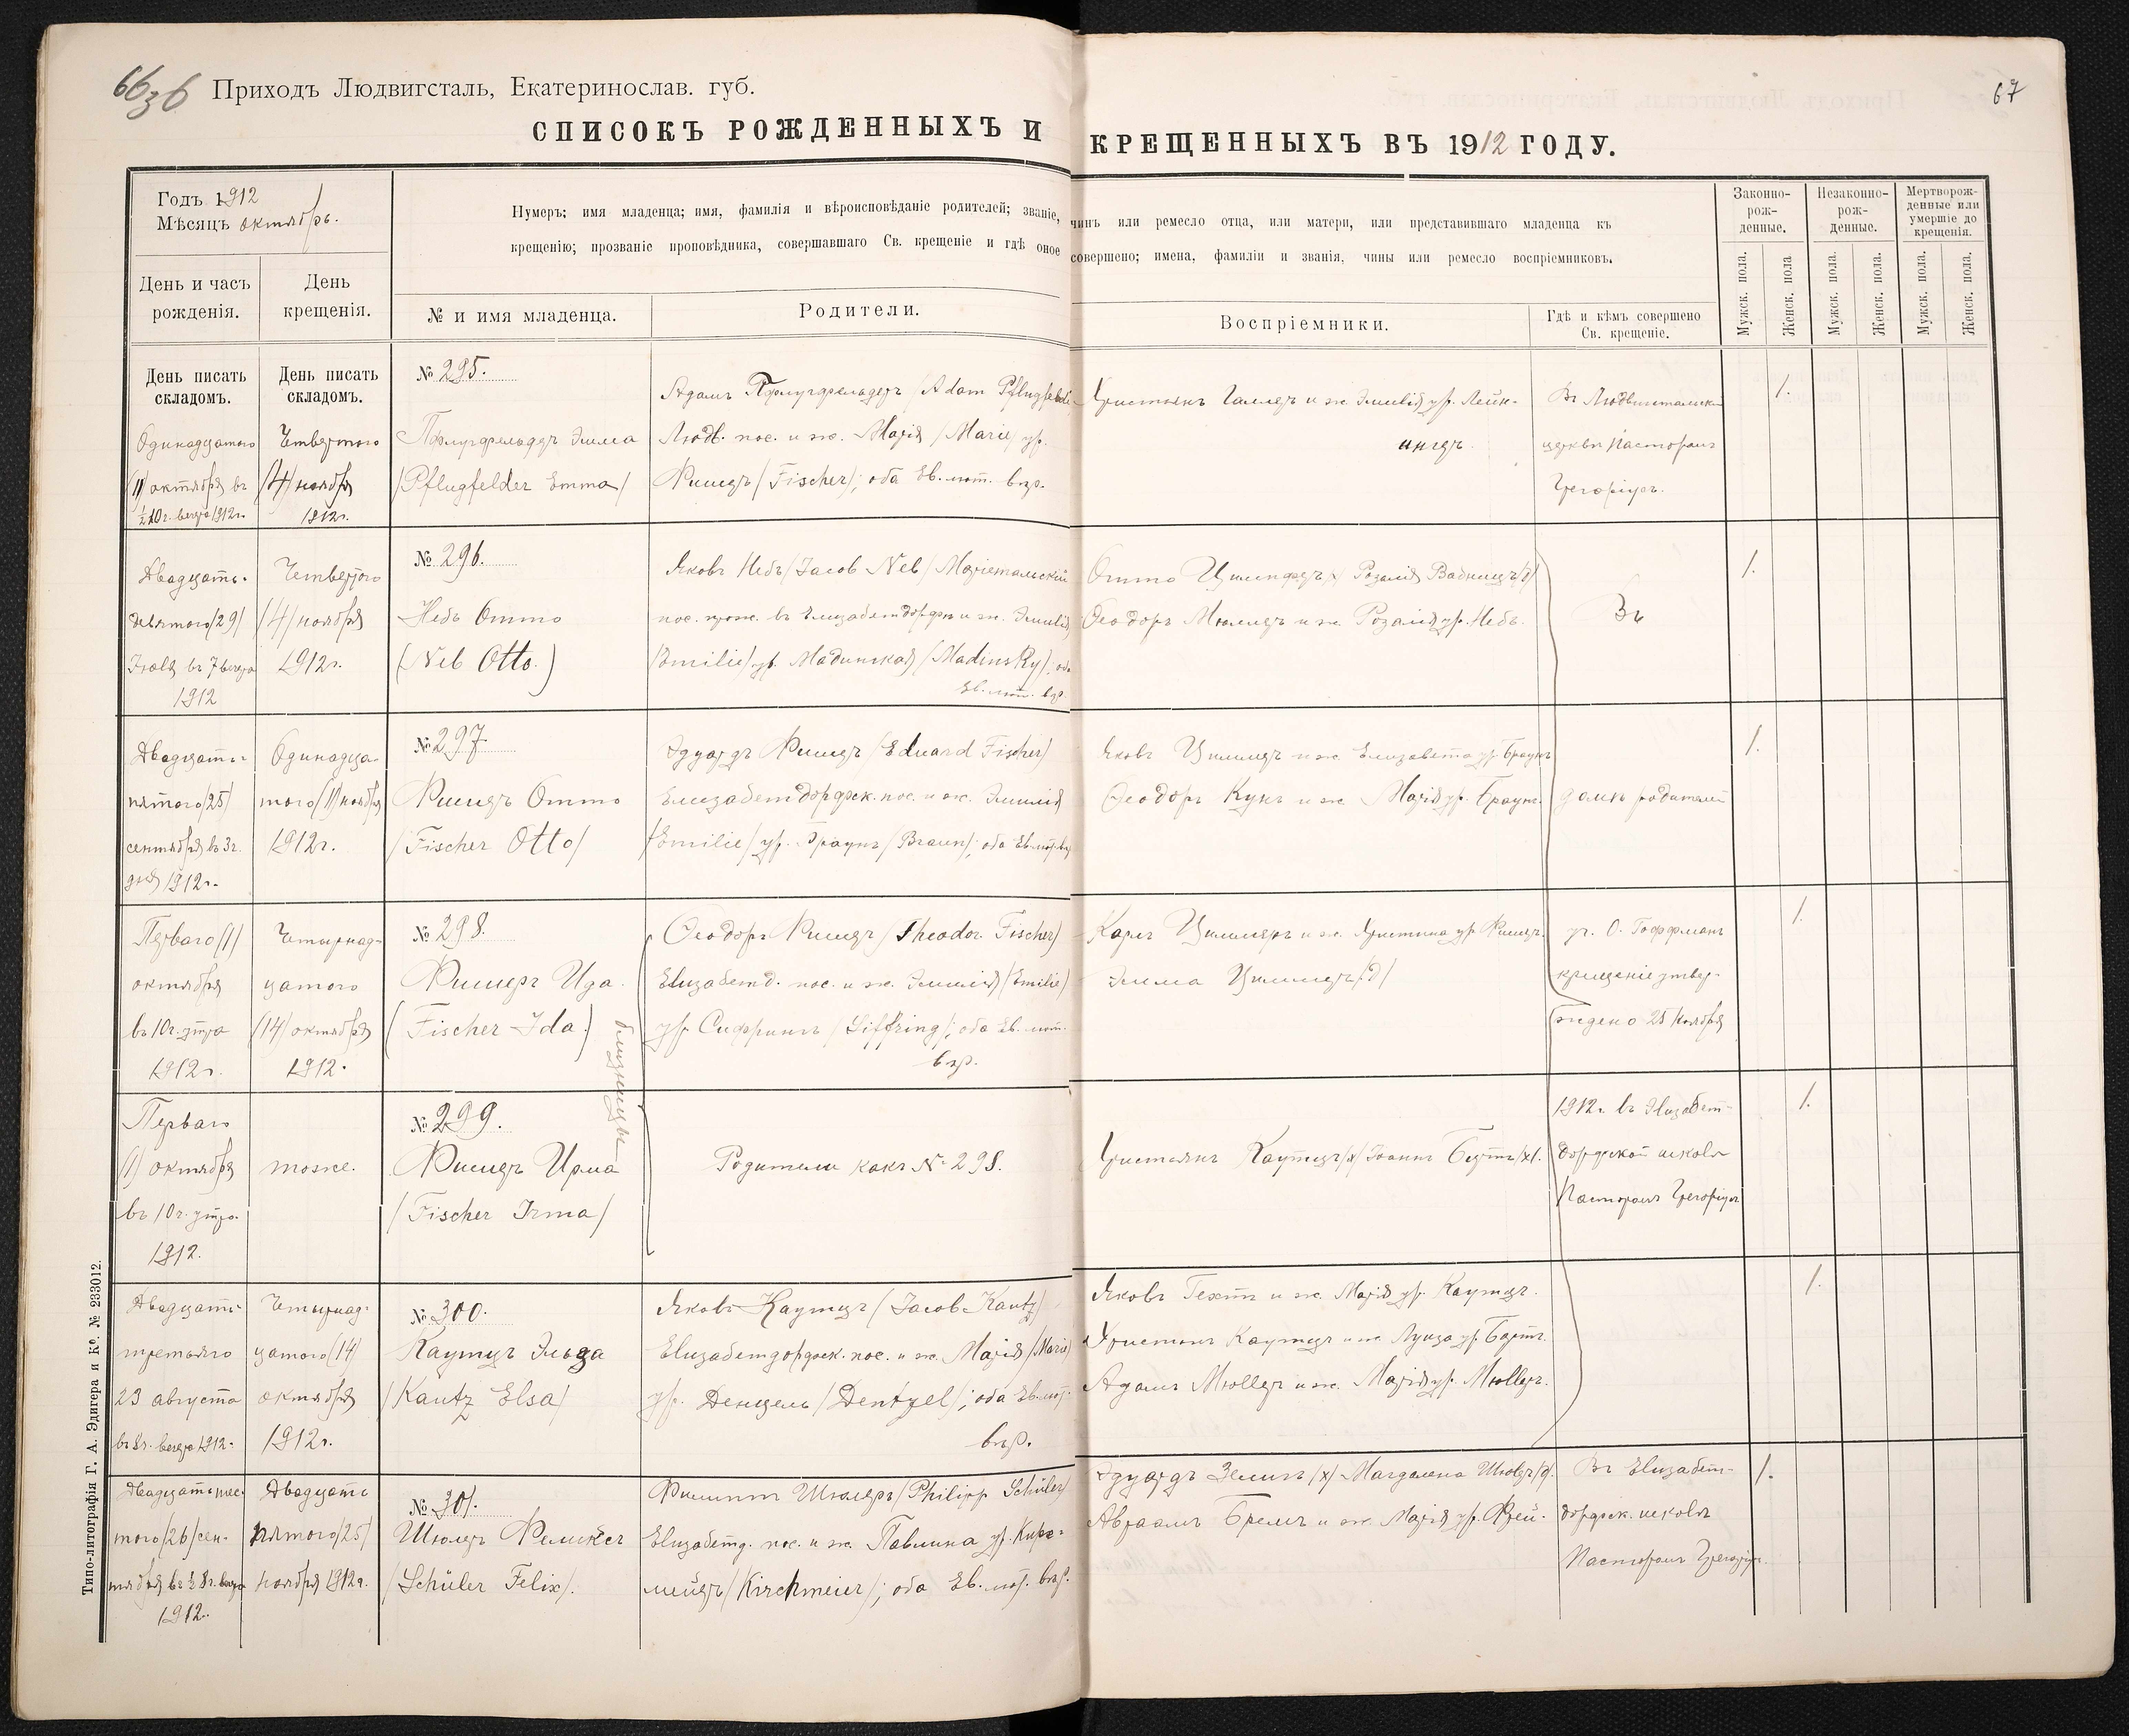 66зб
Приходъ Людвигсталь, Екатеринослав. губ.
67
СПИСОКЪ РОЖДЕННЫХЪ И КРЕЩЕННЫХЪ ВЪ 1912 ГОДУ.
Годъ 1912
Мѣсяцъ октябрь.
Нумеръ; имя младенца; имя, фамилія и вѣроисповѣданіе родителей; званіе, чинъ или ремесло отца, или матери, или представившаго младенца къ
крещенію; прозваніе проповѣдника, совершавшаго Св. крещеніе и гдѣ оное совершено; имена, фамиліи и званія, чины или ремесло воспріемниковъ.
Законно-
рож-
денные.
Незаконно-
рож-
денные.
Мертворож-
денные или
умершіе до
крещенія.
День и часъ
рожденія.
День
крещенія.
№ и имя младенца.
Родители.
Воспріемники.
Гдѣ и кѣмъ совершено
Св. крещеніе.
Мужск. пола.
Женск. пола
Мужск. пола.
Женск. пола.
Мужск. пола.
Женск. пола.
День писать
складомъ.
День писать
складомъ.
Одинадцатого
(11) октября въ
½10 г. вечера 1912 г.
Четвертого
(4) ноября
1912 г.
№ 295.
Пфлугфельдеръ Эмма
/Pflugfelder Emma/
Адамъ Пфлугфельдеръ /Adam Pflugfelder
Людв. пос. и ж. Марія /Marie/ ур.
Фишеръ /Fischer/; оба Ев. лют. вѣр.
Христьянъ Галлеръ и ж. Эмилія ур. Лейн-
ингеръ.
Въ Людвигстальской
церкви Пасторомъ
1.
Двадцать-
девятого (29)
Іюля въ 7 вечера
1912
Четвертого
(4) ноября
1912 г.
№ 296.
Небъ Отто
(Neb Otto.)
Яковъ Небъ /Jacob Neb/ Маріентальскій
пос. прож. въ Елизабетдорфѣ и ж. Эмилія
/Emilie/ ур. Мадинская /Madinsky/; оба
Ев. лют. вѣр.
Отто
Теодоръ Мюллеръ и ж. Розалія ур. Небъ.
Въ
1.
Двадцать-
пятого (25)
сентября въ 3 г.
дня 1912 г.
Одинадца-
того (11) ноября
1912 г.
№ 297.
Фишеръ Отто
/Fischer Otto/
Эдуардъ Фишеръ /Eduard Fischer/
Елизабетдорфск. пос. и ж. Эмилія
/Emilie/ ур. Браунъ /Braun/; оба Ев. лют. вѣр.
Яковъ Циммеръ и ж. Елизавета ур. Браунъ
Теодоръ Кунъ и ж. Марія ур. Браунъ.
домѣ родителей
1.
Перваго (1)
октября
въ 10 г. утра
1912 г.
Четырнад-
цатого
(14) октября
1912.
№ 298.
Фишеръ Ида.
(Fischer Ida.)
близнецы
Теодоръ Фишеръ /Theodor Fischer/
Елизабетд. пос. и ж. Эмилія /Emilie/
ур. Сиффрингъ /Siffring/; оба Ев. лют.
вѣр.
Карлъ Циммеръ и ж. Христина ур. Фишеръ.
Эмма Циммеръ /д/
уч. О. Гоффманъ
крещеніе утвер-
ждено 25 Ноября
1.
Перваго
(1) октября
въ 10 г. утра.
1912.
тоже.
№ 299.
Фишеръ Ирма
/Fischer Irma/
Родители какъ № 298.
Христьянъ Каутцъ /х/ Іоаннъ
1912 г. въ Елизабет-
дорфской школѣ
Пасторомъ
1.
Двадцать-
третьяго
23 августа
въ 8 г. вечера 1912.
Четырнад-
цатого (14)
октября
1912 г.
№ 300.
Каутцъ Эльза
/Kautz Elsa/
Яковъ Каутцъ (Jacob Kautz)
Елизабетдорфск. пос. и ж. Марія /Marie/
ур. Денцель /Dentzel/; оба Ев. лют.
вѣр.
Яковъ и ж. Марія ур. Каутцъ.
Христьянъ Каутцъ и ж. Луиза ур.
Адамъ Мюллеръ и ж. Марія ур. Мюллеръ.
1.
Двадцать шес-
того (26) сен-
тября въ ½ 8 г. вечера
1912.
Двадцать
пятого (25)
ноября 1912 г.
№ 301.
Шюлеръ Феликсъ
/Schüler Felix/.
Филиппъ Шюлеръ /Philipp Schüler/
Елизабетд. пос. и ж. Павлина ур. Кирх-
мейеръ /Kirchmeier/; оба Ев. лют. вѣр.
Эдуардъ /х/ Магдалена /д/.
Авраамъ и ж. Марія ур.
Въ Елизабет-
дорфск. школѣ
Пасторомъ
1.
Типо-литографія Г. А. Эдигера и Ко. № 233012.